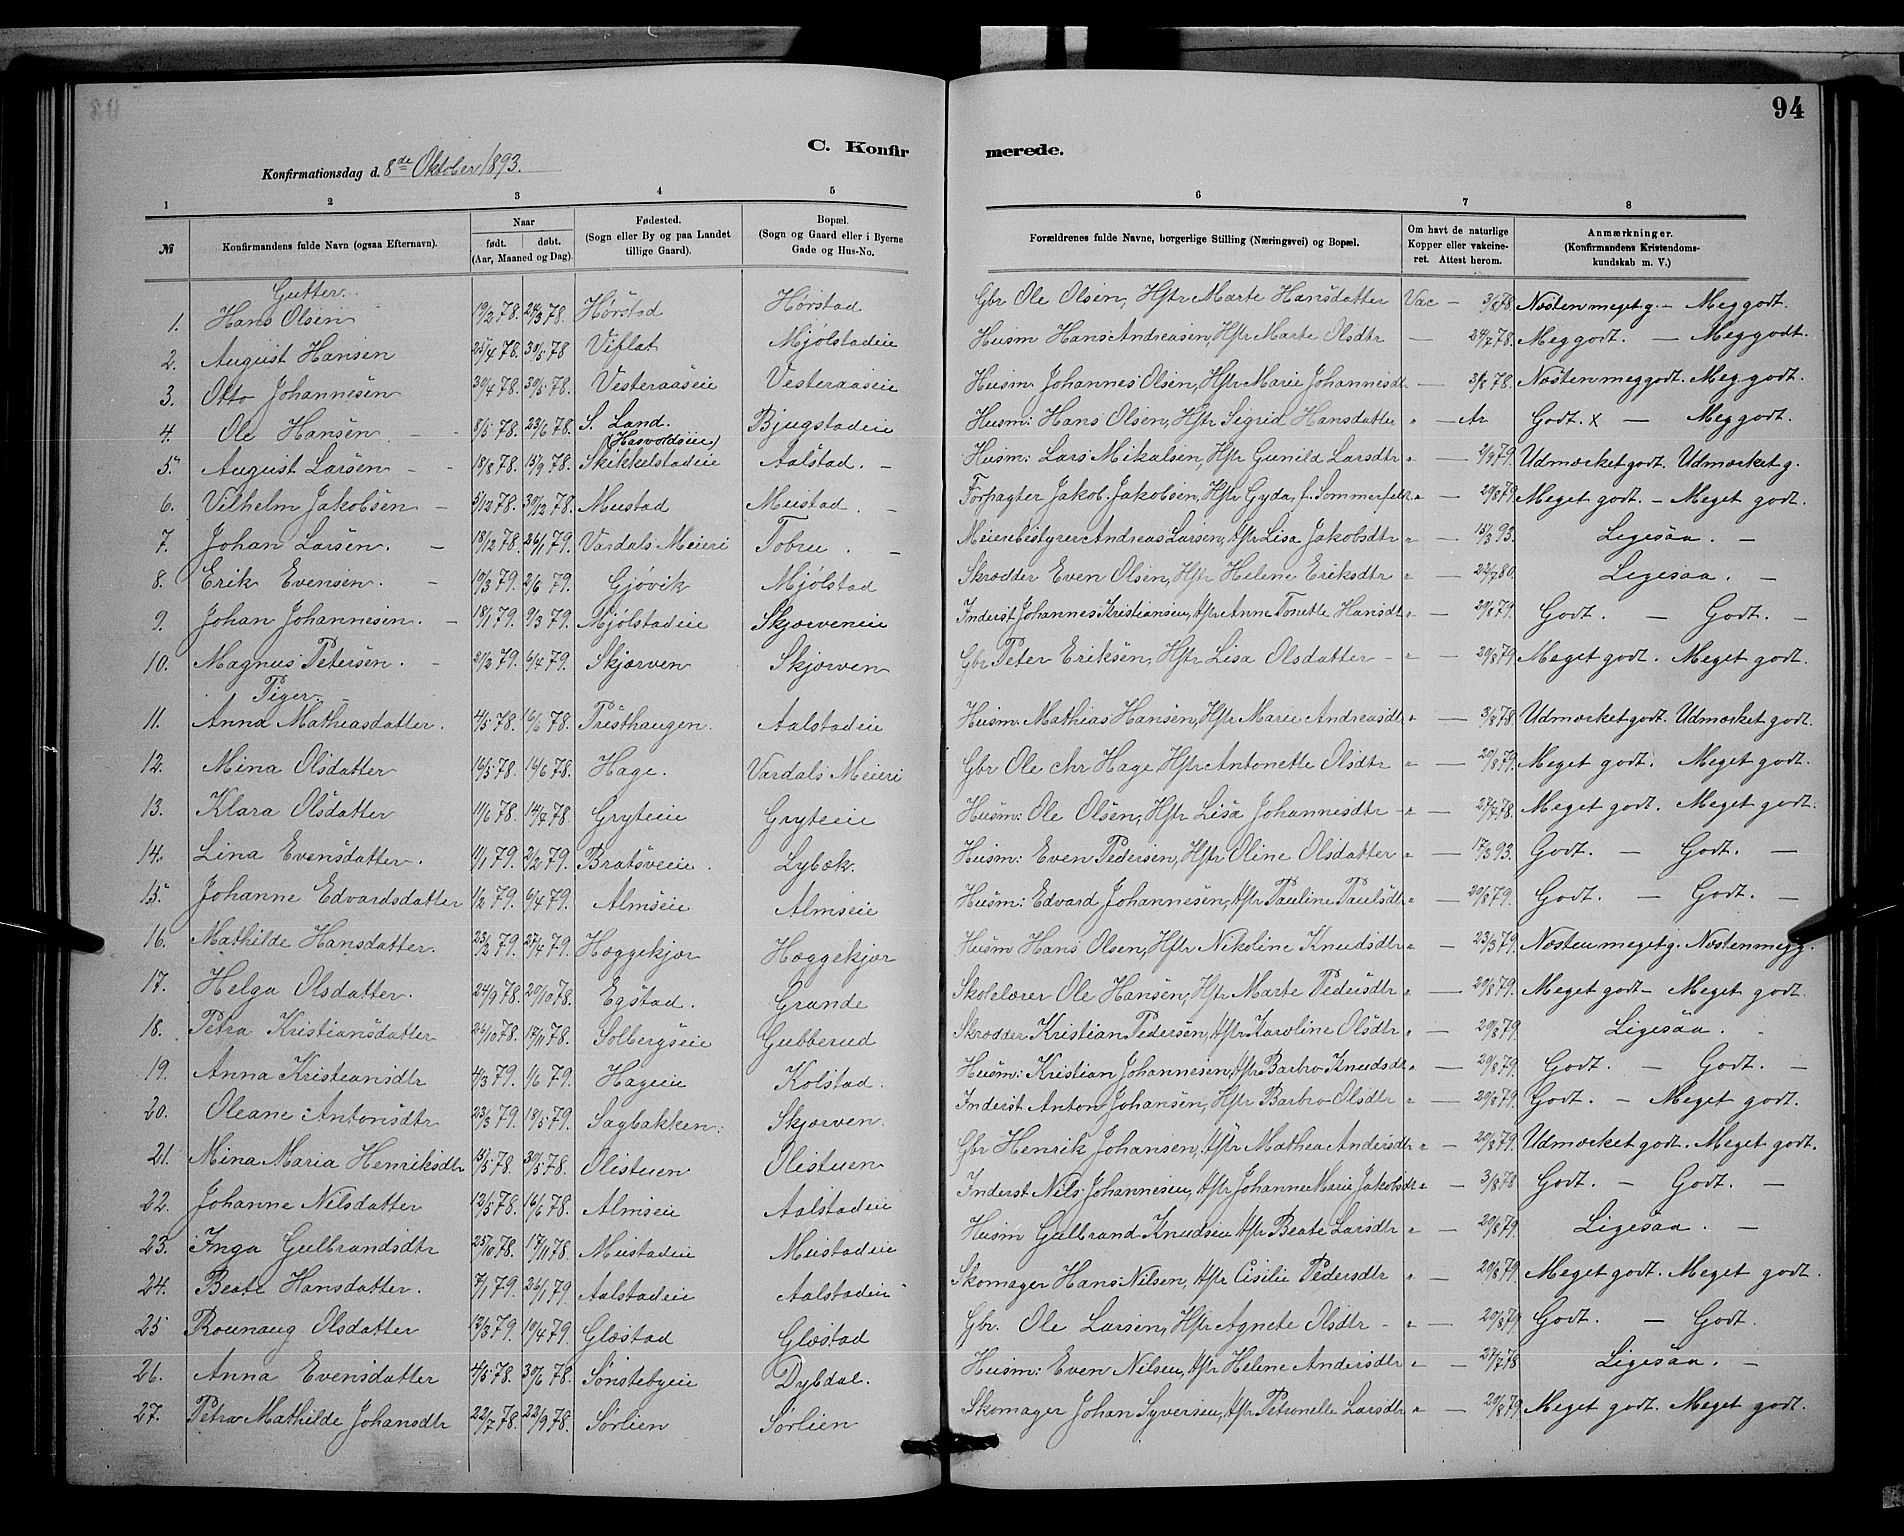 94
C. Konfirmerede.
Konfirmationsdag d. 8de Oktober 1893.
1 2 3 4 5 6 7 8
№ Konfirmandens fulde Navn (ogsaa Efternavn). Naar født. døbt. (Aar, Maaned og Dag). Fødested. (Sogn eller By og paa Landet tillige Gaard). Bopæl. (Sogn og Gaard eller i Byerne Gade og Hus-No. Forældrenes fulde Navne, borgerlige Stilling (Næringsvei) og Bopæl. Om havt de naturlige Kopper eller vakcineret. Attest herom. Anmærkninger. (Konfirmandens Kristendomskundskab m. V.)
Gutter.
1. Hans Olsen 19/2 78. 24/3 78. Hørstad Hørstad Gbr Ole Olsen, Hstr Marte Hansdatter Vac — 3/8 78. Næsten meget g. — Meg godt.
2. August Hansen 25/4 78. 30/5 78 Viflat Mjølstadeie Husm Hans Andreasen, Hstr Marte Olsdtr — 24/7 78. Meg godt. — Meg godt.
3. Otto Johannesen 30/4 78. 30/5 78. Vesteraaseie Vesteraaseie Husm. Johannes Olsen, Hstr Marie Johannesdt. — 3/8 78. Næsten meg godt. Meg godt.
4. Ole Hansen 8/5 78. 23/6 78. S. Land. (Hasvoldseie) Bjugstadeie Husm: Hans Olsen, Hstr Sigrid Hansdatter " — Ar Godt. x — Meg godt.
5. August Larsen 18/8 78. 15/9 78. Skikkelstadeie Aalstad. Husm: Lars Mikalsen, Hstr Gunild Larsdtr " — 2/9 79. Udmærket godt. Udmærket g.
6. Vilhelm Jakobsen 5/12 78. 30/12 78. Mustad Mustad. Forpagter Jakob Jakobsen, Hstr Gyda, f. Sommerfelt " — 20/8 79. Meget godt. — Meget godt.
7. Johan Larsen. 18/12 78. 26/1 79. Vardals Meieri Tobru. Meieribestyrer Andreas Larsen, Hstr Lisa Jakobsdtr " — 15/3 93. Ligesaa. —
8. Erik Evensen. 19/3 79. 2/6 79. Gjøvik Mjølstad Skrædder Even Olsen, Hstr Helene Eriksdtr " — 22/7 80. Ligesaa. —
9. Johan Johannesen. 18/1 79. 9/3 79. Mjølstadeie Skjærveneie Inderst Johannes Kristiansen, Hstr Anne Tonette Hansdt " — 20/8 79. Godt. — Godt. —
10. Magnus Petersen. 21/2 79. 6/4 79. Skjærven Skjærven Gbr Peter Eriksen, Hstr Lisa Olsdatter " — 20/8 79. Meget godt. Meget godt.
Piger.
11. Anna Mathiasdatter. 4/5 78. 16/6 78. Præsthaugen. Aalstadeie Husm. Mathias Hansen, Hstr Marie Andreasdtr " — 3/8 78 Udmærket godt. Udmærket godt.
12. Mina Olsdatter 16/5 78. 16/6 78. Hage. Vardals Meieri Gbr Ole Chr Hage, Hstr Antonette Olsdtr " — 20/8 79. Meget godt. Meget godt.
13. Klara Olsdatter 11/6 78. 14/7 78 Gryteeie Gryteeie Husm: Ole Olsen, Hstr Lisa Johannesdtr " — 27/7 78. Meget godt. Meget godt.
14. Lina Evensdatter. 11/1 79. 2/2 79. Bratsveeie. Lybæk. Husm: Even Pedersen, Hstr Oline Olsdatter " — 17/3 93. Godt. — Godt. —
15. Johanne Edvardsdatter 1/2 79. 6/4 79. Almseie Almseie Husm: Edvard Johannesen, Hstr Pauline Paulsdtr " — 20/8 79. Godt. — Godt. —
16. Mathilde Hansdatter. 23/2 79. 27/4 79. Hæggekjær Hæggekjær Husm Hans Olsen, Hstr Nikoline Knudsdtr " — 23/3 79. Næsten meget g. Næsten meg g.
17. Helga Olsdatter. 24/9 78. 20/10 78. Egstad. Grande Skolelærer Ole Hansen, Hstr Marte Pedersdtr " — 20/8 79. Meget godt — Meget godt.
18. Petra Kristiansdatter 26/10 78. 17/11 78. Solbergseie Gubberud Skrædder Kristian Pedersen, Hstr Karoline Olsdtr " — 20/8 79. Ligesaa.
19. Anna Kristiansdtr 4/3 79. 1/6 79. Hageeie Kolstad. Husm: Kristian Johannesen, Hstr Barbro Knudsdtr " — 20/8 79. Godt. — Godt. —
20. Oleane Antonsdtr 23/3 79. 18/5 79. Sagbakken. Skjærven. Inderst Anton Johansen, Hstr Barbro Olsdtr " — 20/8 79. Godt. — Meget godt.
21. Mina Maria Henriksdtr 15/5 78. 30/5 78. Olistuen Olistuen Gbr Henrik Johansen, Hstr Mathea Andersdtr " — 20/8 79. Udmærket godt. Meget godt.
22. Johanne Nilsdatter 13/5 78. 16/6 78. Almseie Aalstadeie Inderst Nils Johannesen, Hstr Johanne Marie Jakobsdtr " — 3/8 78 Godt. — Godt. —
23. Inga Gulbrandsdtr 25/10 78. 17/11 78. Mustadeie Mustadeie Husm Gulbrand Knudsen Hstr Beate Larsdtr " — 20/8 79. Ligesaa. —
24. Beate Hansdatter. 7/1 79. 26/1 79. Aalstadeie Aalstadeie Skomager Hans Nilsen, Hstr Cisilie Pedersdtr " — 20/8 79. Meget godt. Meget godt.
25 Rounaug Olsdatter 13/3 79. 19/4 79. Glæstad Glæstad Gbr. Ole Larsen, Hstr Agnete Olsdtr " — 20/8 79 Godt. — Godt.
26. Anna Evensdatter 4/5 78. 30/6 78. Sønstebyeie Dybdal. Husm: Even Nilsen, Hstr Helene Andersdtr " — 27/7 78 Ligesaa. —
27. Petra Mathilde Johansdtr 22/7 78. 22/9 78. Sørlien Sørlien Skomager Johan Syversen, Hstr Petronelle Larsdtr " — 20/8 79 Meget godt. Meget godt.